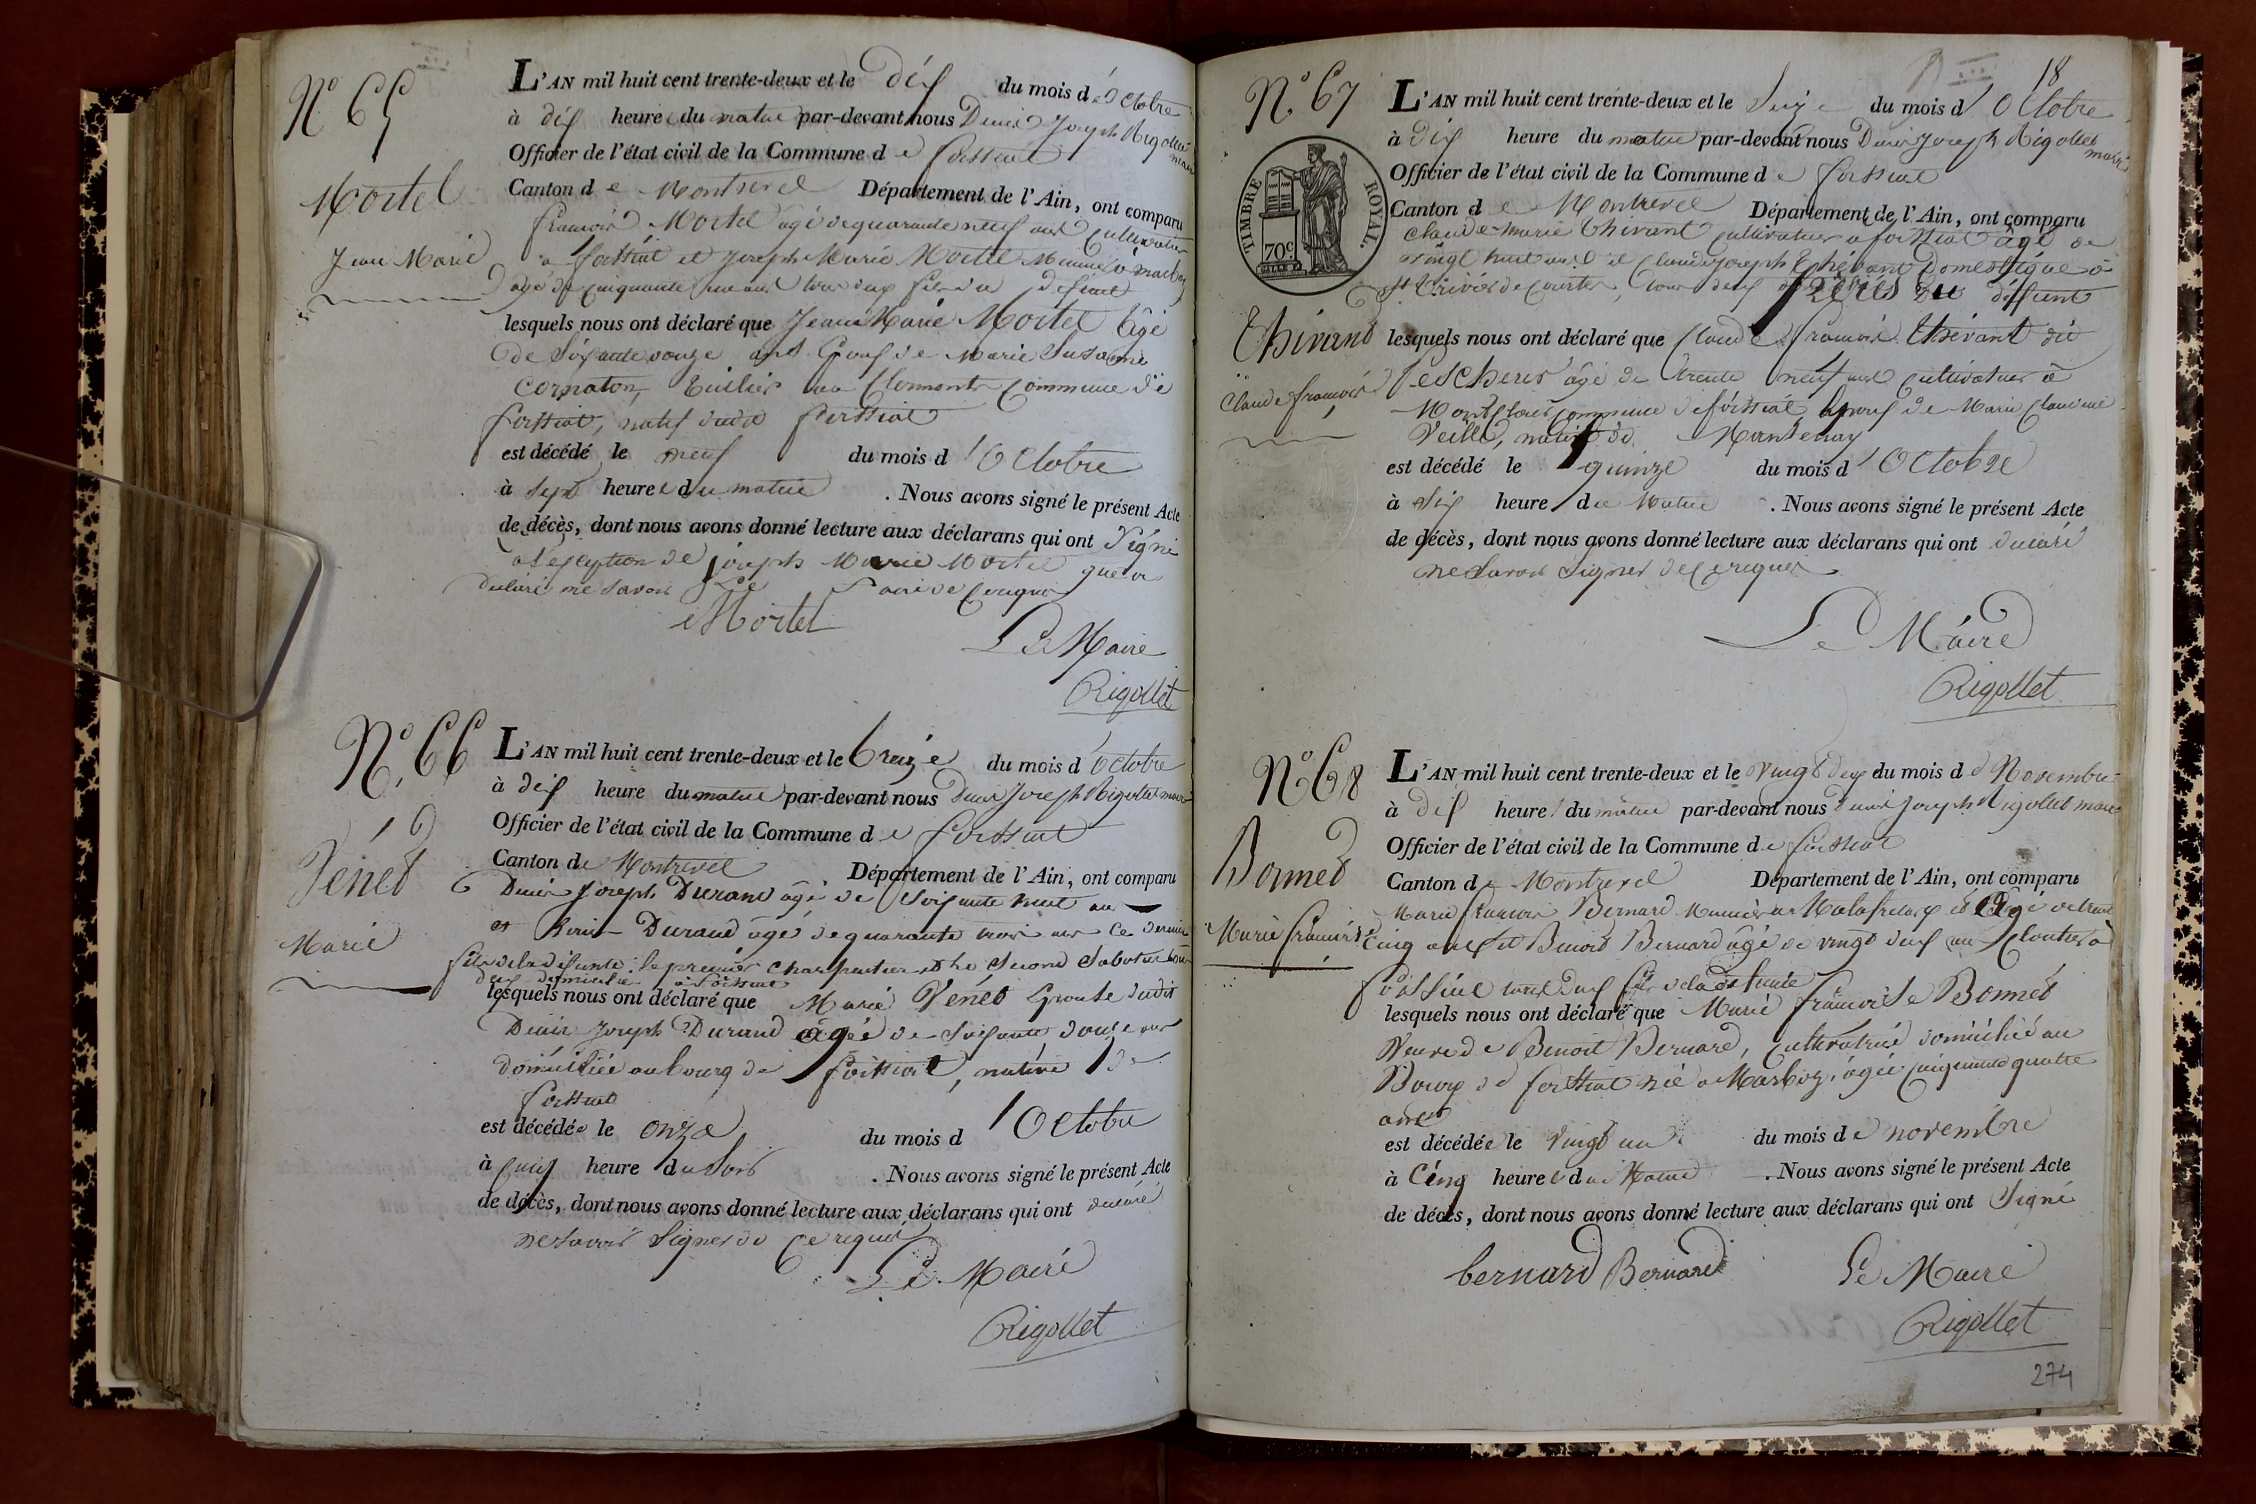 N.º 65
Mortel
Jean Marie
L'AN mil huit cent trente-deux et le dix du mois d'Octobre
à dix heure du matin par-devant nous Denis Joseph Rigollet maire
Officier de l'état civil de la Commune de foissiat
Canton de Montrevel Département de l'Ain, ont comparu
françois Mortel agé de quarante neuf ans Cultivateur
a foissiat et Joseph Marie Mortel Meunier a marboz
agé de cinquante un ans tous deux fils du défunt
lesquels nous ont déclaré que Jean Marie Mortel âgé
de soixante onze ans Epoux de Marie Susanne
Cornaton, tuilier aux Clermonts Commune de
foissiat, natif dudit foissiat
est décédé le neuf du mois d'Octobre
à sept heure du matin . Nous avons signé le présent Acte
de décès, dont nous avons donné lecture aux déclarans qui ont signé
a l'exception de joseph Marie Mortel que a
declaré ne savoir le faire de ce requis
Mortel
Le Maire
Rigollet
N.º 66
Vénet
Marie
L'AN mil huit cent trente-deux et le treize du mois d'octobre
à dix heure du matin par-devant nous Denis Joseph Rigollet maire
Officier de l'état civil de la Commune de foissiat
Canton de Montrevel Département de l'Ain, ont comparu
Denis Joseph Durand âgé de soixante huit ans
et Durand âgé de quarante trois ans ce dernier
fils de la défunte le premier charpentier et le second sabotier tous
deux domicilié a foissiat
lesquels nous ont déclaré que Marie Vénet Epouse dudit
Denis Joseph Durand agée de soixante douze ans
domiciliée au bourg de foissiat, native de
foissiat
est décédée le onze du mois d'Octobre
à cinq heure du soir . Nous avons signé le présent Acte
de décès, dont nous avons donné lecture aux déclarans qui ont declaré
ne savoir signer de ce requis
Le Maire
Rigollet
18
N.º 67
TIMBRE ROYAL.
70c.
Thivand
Claude françois
L'AN mil huit cent trente-deux et le seize du mois d'Octobre
à dix heure du matin par-devant nous Denis Joseph Rigollet maire
Officier de l'état civil de la Commune de foissiat
Canton de Montrevel Département de l'Ain, ont comparu
Claude-Marie thivant cultivateur a foissiat âgé de
vingt huit ans et Claude joseph thévant Domestique a
St trivier de courtes, tous deux frères du défunt
lesquels nous ont déclaré que Claude françois thévant dit
âgé de trente neuf ans cultivateur à
commune de foissiat, epoux de Marie Claudine
Veille, natif de Mantenay
est décédé le quinze du mois d'Octobre
à six heure du Matin . Nous avons signé le présent Acte
de décès, dont nous avons donné lecture aux déclarans qui ont déclaré
ne savoir signer de ce requis
Le Maire
Rigollet
N.º 68
Bonnet
Marie françoise
L'AN mil huit cent trente-deux et le vingt deux du mois de Novembre
à dix heure du matin par-devant nous Denis Joseph Rigollet maire
Officier de l'état civil de la Commune de foissiat
Canton de Montrevel Département de l'Ain, ont comparu
Marie françois Bernard Meunier a Malafretaz et âgé de trente
cinq ans et Benoit Bernard âgé de vingt deux ans Cloutier à
foissiat tous deux fils de la défunte
lesquels nous ont déclaré que Marie françoise Bonnet
Veuve de Benoit Bernard, cultivatrice domiciliée au
Bourg de foissiat née a Marboz, agée cinquante quatre
ans
est décédée le vingt un du mois de novembre
à cinq heure du Matin . Nous avons signé le présent Acte
de décès, dont nous avons donné lecture aux déclarans qui ont signé
bernard Bernard
Le Maire
Rigollet
274